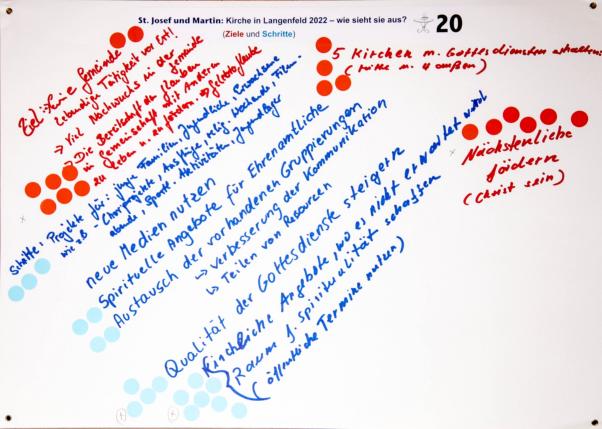 St. Josef und Martin: Kirche in Langenfeld 2022 – wie sieht sie aus?
20
(Ziele und Schritte)
Ziel: Gemeinde
lebendige Tätigkeit vor Ort!
→ Viel Nachwuchs in der Gemeinde
→ Die Bereitschaft den Glauben
in Gemeinschaft mit Anderen
zu leben u.
Schritte: Projekte für: junge Familien, Jugendliche, Erwachsene
wie zB - Chorprojekte, Ausflüge, relig. Wochenende, Filmabende, Sport-Aktivitäten, Jugendlager
neue Medien nutzen
Spirituelle Angebote für Ehrenamtliche
Austausch der vorhandenen Gruppierungen
→ Verbesserung der Kommunikation
↳ Teilen von Resourcen
Qualität der Gottesdienste steigern
Kirchliche Angebote, wo es nicht erwartet wird
Raum f. Spiritualität schaffen
(öffentliche Termine nutzen)
5 Kirchen m. Gottesdiensten erhalten
Nächstenliebe
fördern
(Christ sein)